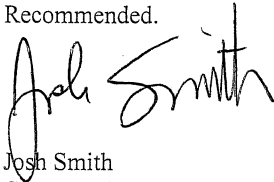 Recommended.
Josh Smith
Josh Smith